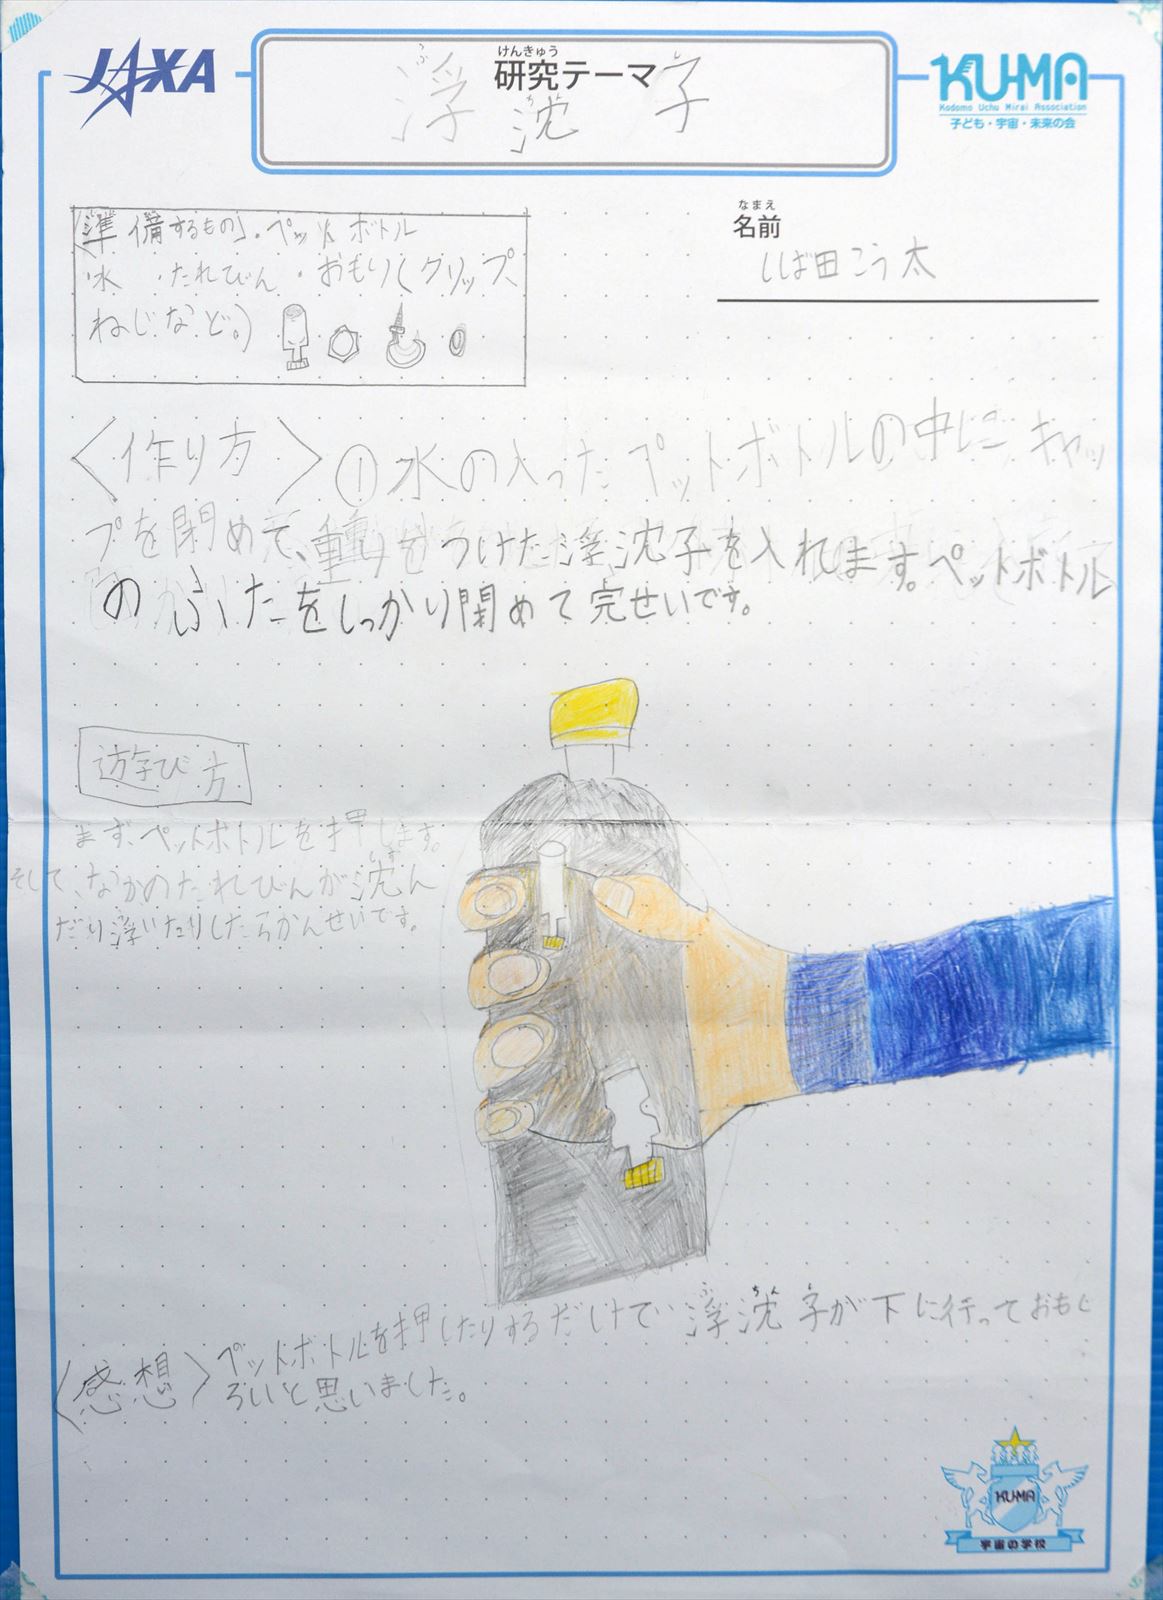 JAXA
けんきゅう
研究テーマ
ふ ちん し
浮沈子
KU-MA
Kodomo Uchu Mirai Association
子ども・宇宙・未来の会
なまえ
名前
しば田こう太
準備するもの・ペットボトル
・水 ・たれびん ・おもり(クリップ
ねじなど。)
〈作り方〉①水の入ったペットボトルの中にキャッ
プを閉めて、重りをつけた浮沈子を入れます。ペットボトル
のふたをしっかり閉めて完せいです。
遊び方
まず、ペットボトルを押します。
そして、なかのたれびんが沈ん
だり浮いたりしたらかんせいです。
〈感想〉ペットボトルを押したりするだけで浮沈子が下に行っておもし
ろいと思いました。
KU-MA
宇宙の学校